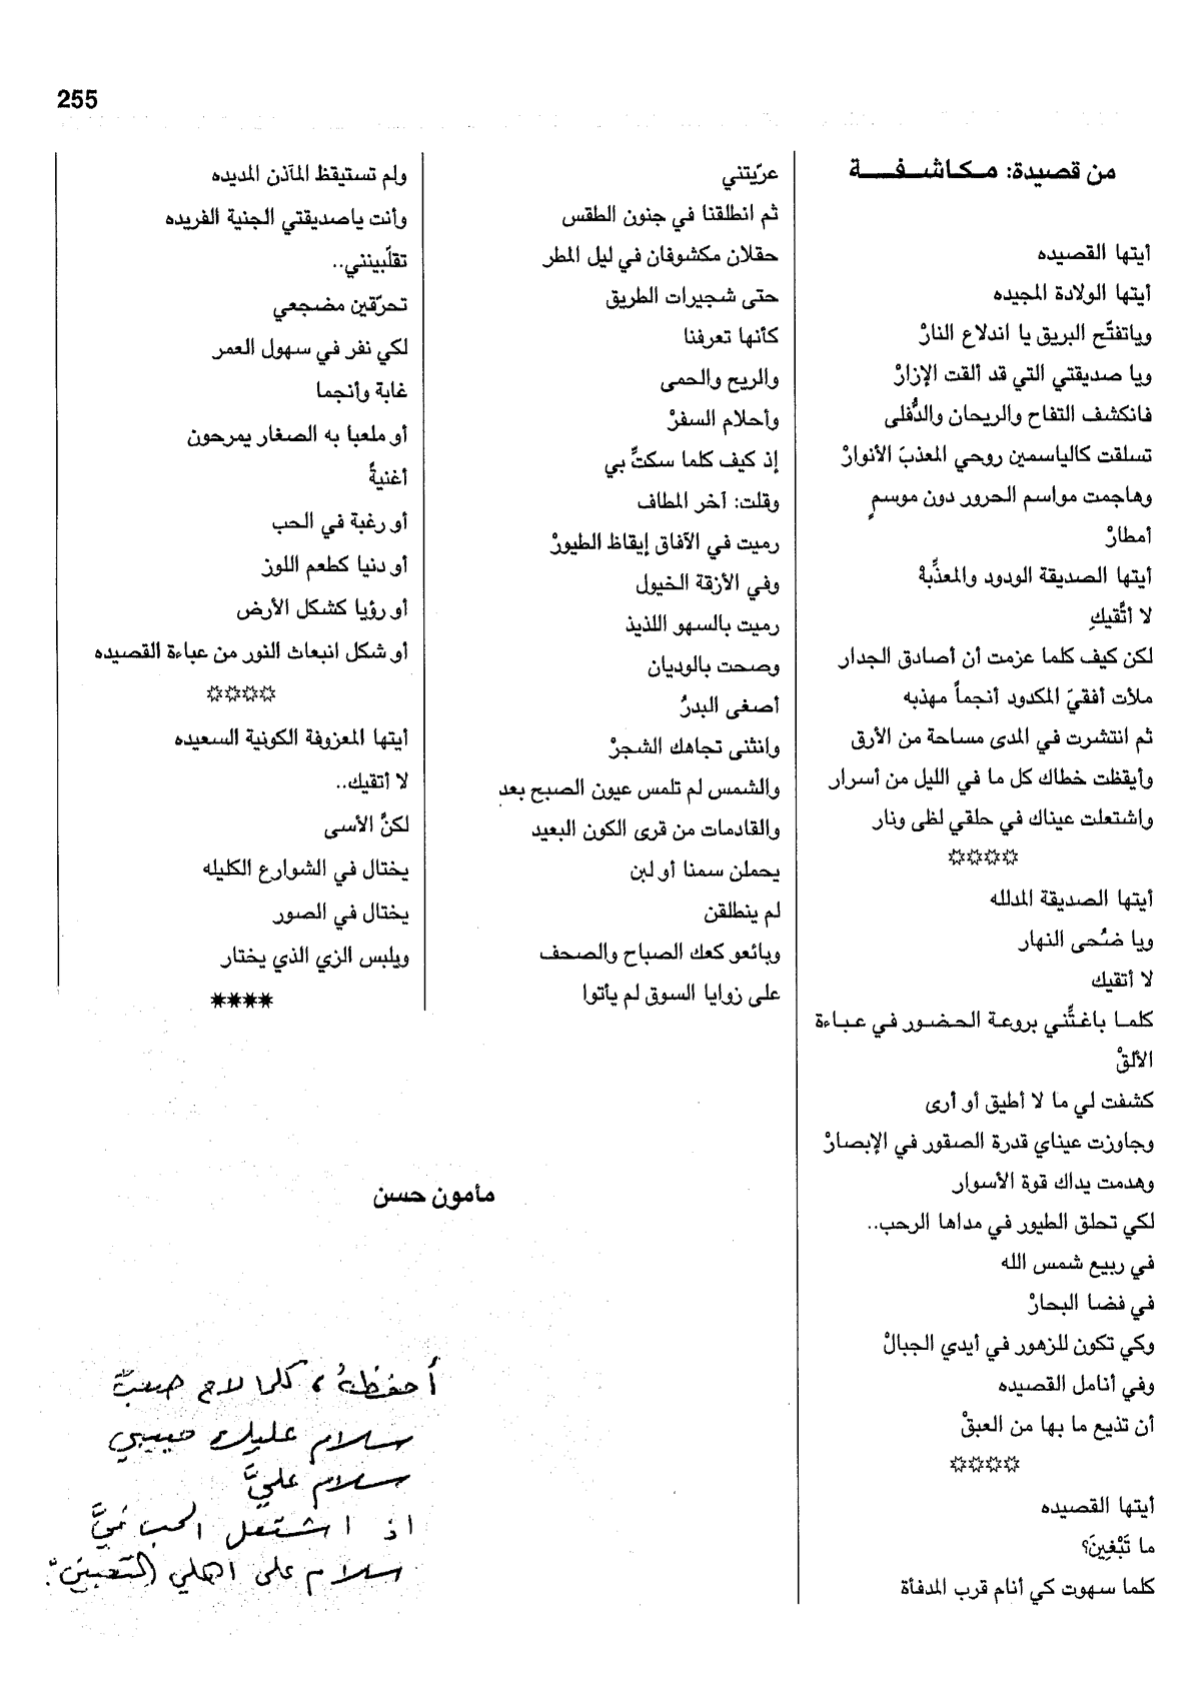 255
من قصيدة: مـكـاشـفـــة
أيتها القصيده
أيتها الولادة المجيده
وياتفتّح البريق يا اندلاع النارْ
ويا صديقتي التي قد ألقت الإزارْ
فانكشف التفاح والريحان والدُّفلى
تسلقت كالياسمين روحي المعذبَ الأنوارْ
وهاجمت مواسم الحرور دون موسمٍ
أمطارْ
أيتها الصديقة الودود والمعذِّبهْ
لا أتَّقيكِ
لكن كيف كلما عزمت أن أصادق الجدار
ملأت أفقيَ المكدود أنجماً مهذبه
ثم انتشرت في المدى مساحة من الأرق
وأيقظت خطاك كل ما في الليل من أسرار
واشتعلت عيناك في حلقي لظى ونار
☼☼☼☼
أيتها الصديقة المدلله
ويا ضُحى النهار
لا أتقيك
كلمـا باغـتِّني بروعـة الحـضـور فـي عـبـاءة
الألقْ
كشفت لي ما لا أطيق أو أرى
وجاوزت عيناي قدرة الصقور في الإبصارْ
وهدمت يداك قوة الأسوار
لكي تحلق الطيور في مداها الرحب..
في ربيع شمس الله
في فضا البحارْ
وكي تكون للزهور في أيدي الجبالْ
وفي أنامل القصيده
أن تذيع ما بها من العبقْ
☼☼☼☼
أيتها القصيده
ما تَبْغِينَ؟
كلما سهوت كي أنام قرب المدفأة
عرّيتني
ثم انطلقنا في جنون الطقس
حقلان مكشوفان في ليل المطر
حتى شجيرات الطريق
كأنها تعرفنا
والريح والحمى
وأحلام السفرْ
إذ كيف كلما سكتِّ بي
وقلت: أخر المطاف
رميت في الآفاق إيقاظ الطيورْ
وفي الأزقة الخيول
رميت بالسهو اللذيذ
وصحت بالوديان
أصغى البدرُ
وانثنى تجاهك الشجرْ
والشمس لم تلمس عيون الصبح بعد
والقادمات من قرى الكون البعيد
يحملن سمنا أو لبن
لم ينطلقن
وبائعو كعك الصباح والصحف
على زوايا السوق لم يأتوا
ولم تستيقظ المآذن المديده
وأنت ياصديقتي الجنية الفريده
تقلّبينني..
تحرّقين مضجعي
لكي نفر في سهول العمر
غابة وأنجما
أو ملعبا به الصغار يمرحون
أغنيةً
أو رغبة في الحب
أو دنيا كطعم اللوز
أو رؤيا كشكل الأرض
أو شكل انبعاث النور من عباءة القصيده
☼☼☼☼
أيتها المعزوفة الكونية السعيده
لا أتقيك..
لكنَّ الأسى
يختال في الشوارع الكليله
يختال في الصور
ويلبس الزي الذي يختار
✷✷✷✷
مأمون حسن
أحفظهُ، كلما لاح
سلام عليك حبيبي
سلام عليَّ
اذ اشتعل الحب فيَّ
سلام على اهلي